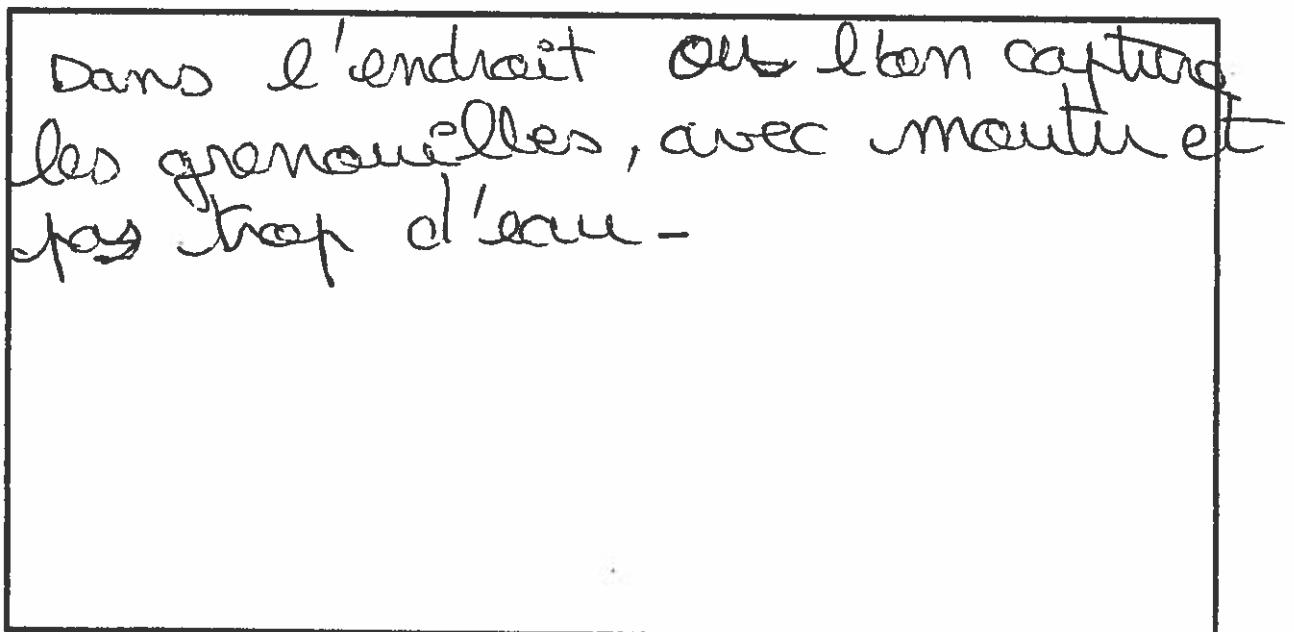 Dans l'endroit ou l'on capture
les grenouilles, avec moutu et
pas trop d'eau -